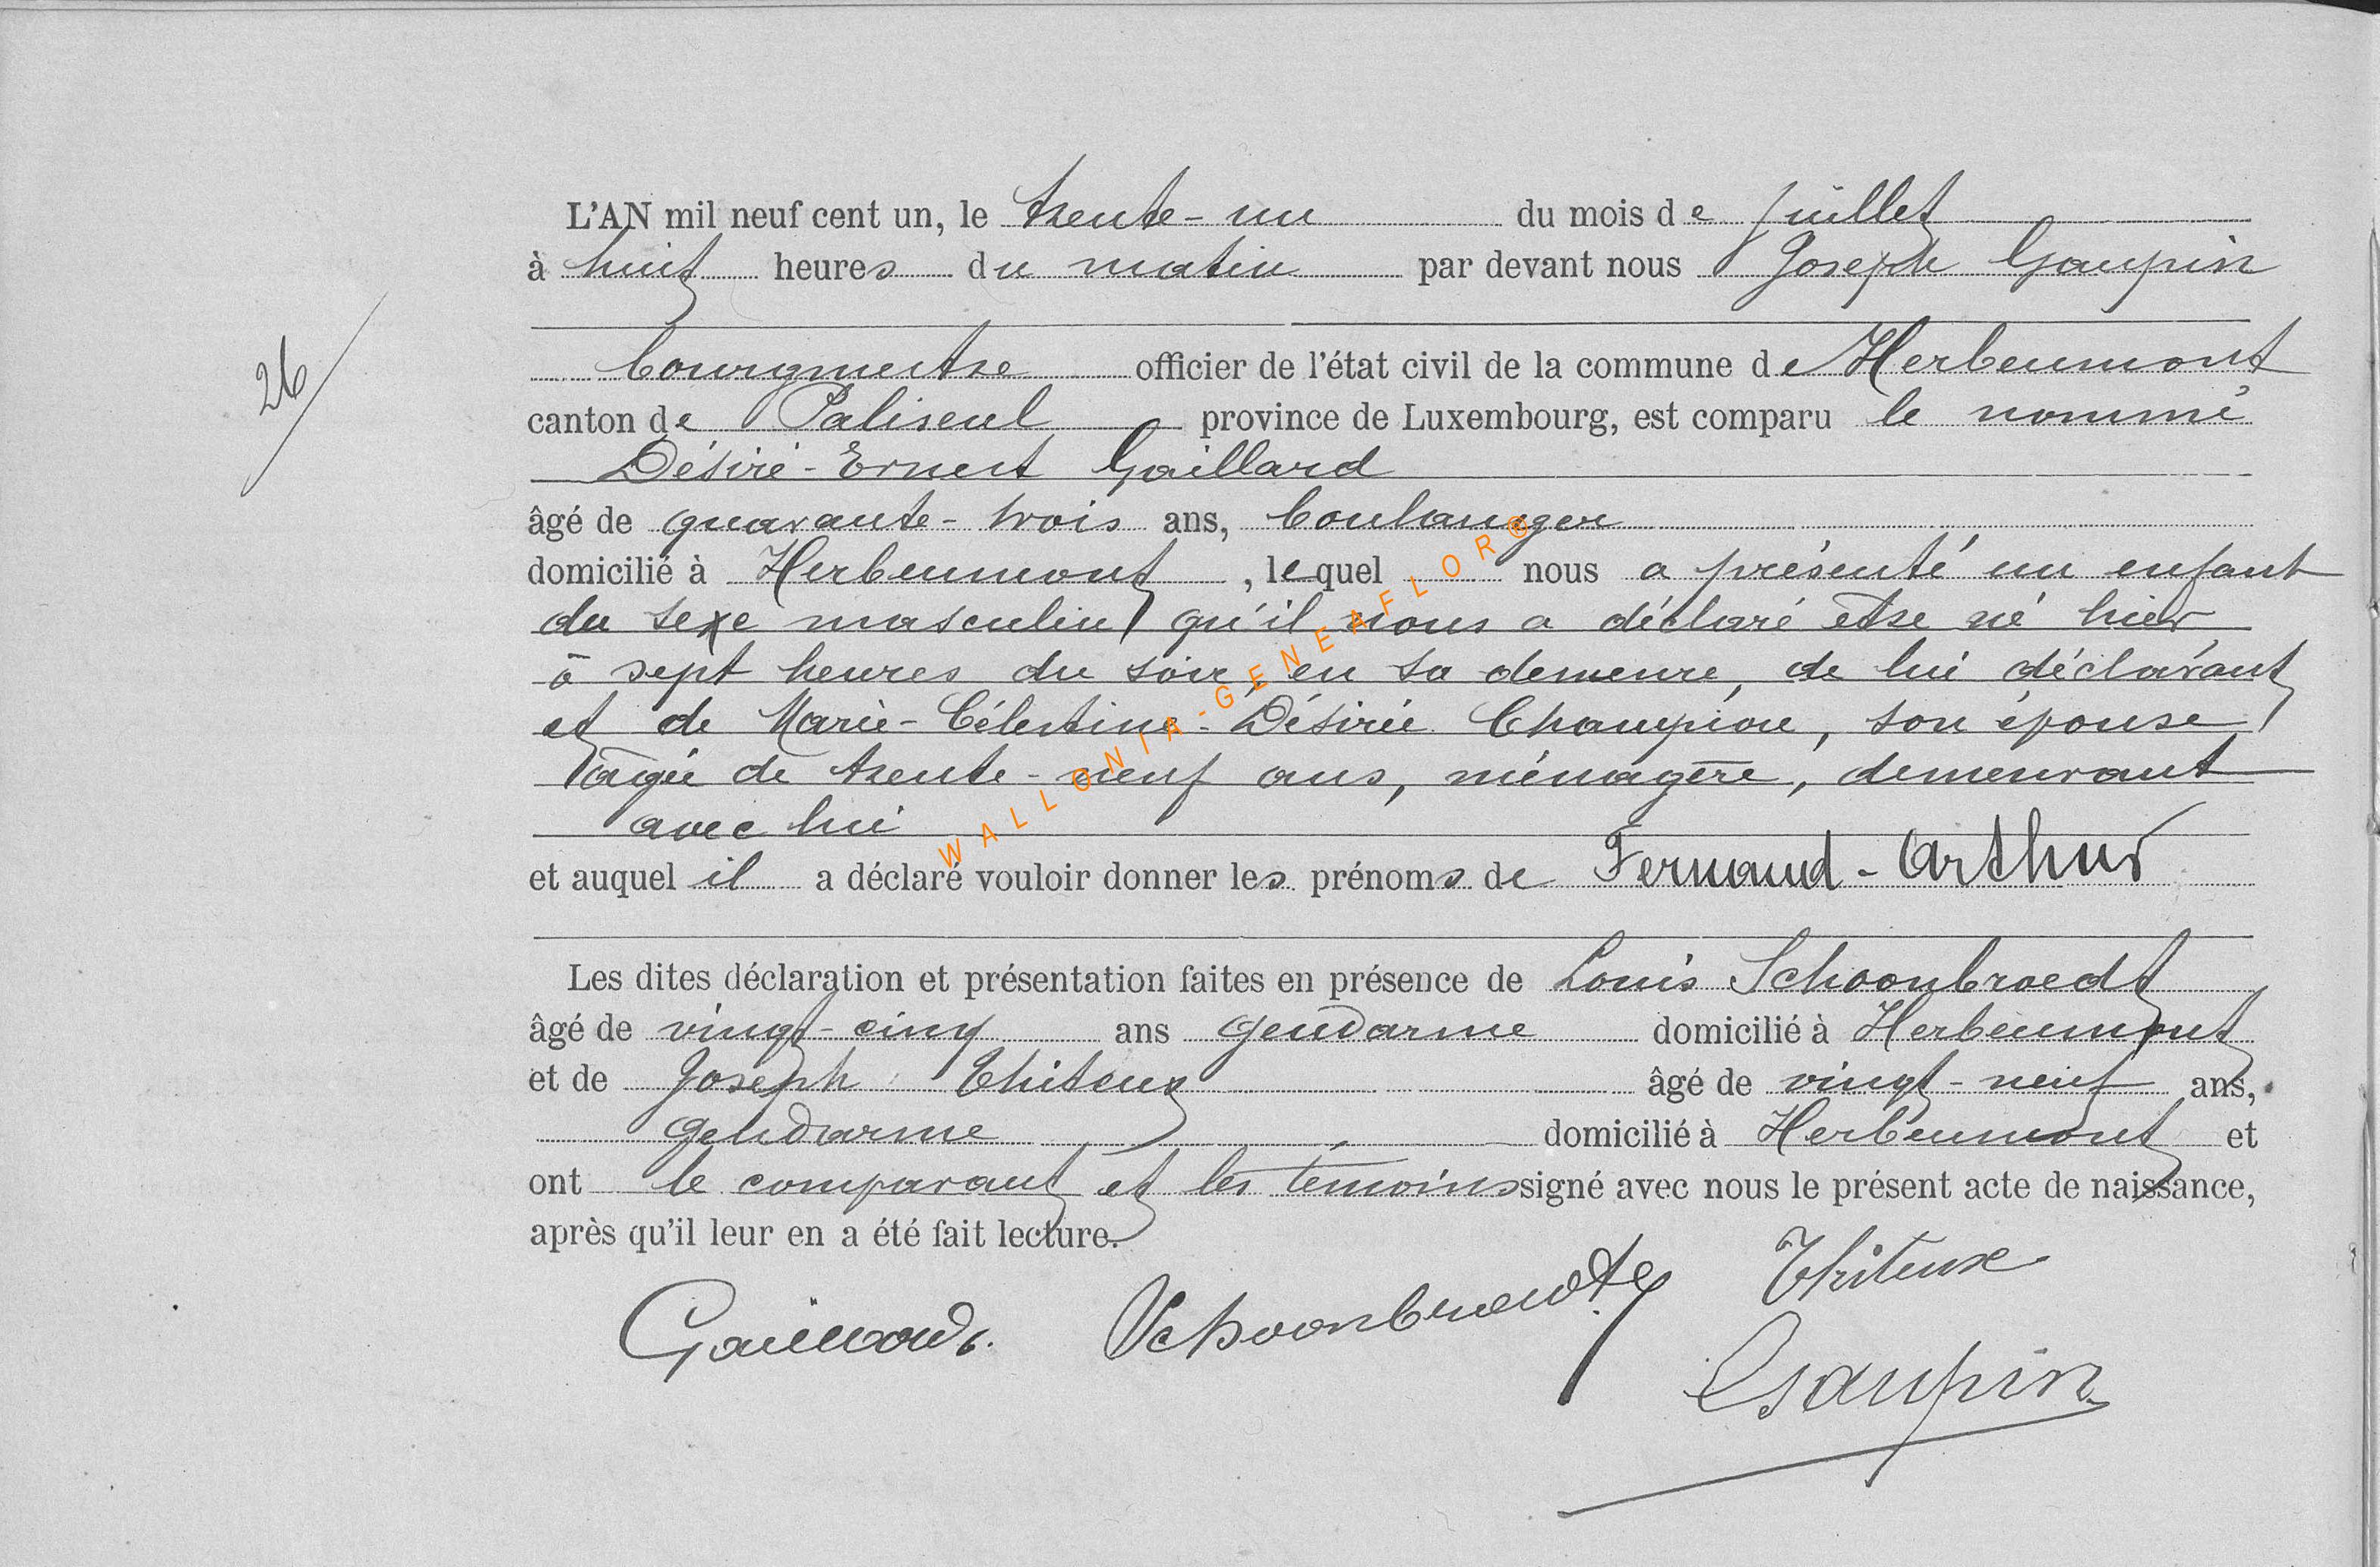 L'AN mil neuf cent un, le trente-un du mois de juillet
à huit heures du matin par devant nous Joseph Gaupin
26
bourgmestre officier de l'état civil de la commune de Herbeumont
canton de Paliseul province de Luxembourg, est comparu le nommé
Désiré-Ernest Gaillard
âgé de quarante-trois ans, boulanger
domicilié à Herbeumont, lequel nous a présenté un enfant
du sexe masculin qu'il nous a déclaré être né hier
à sept heures du soir, en sa demeure, de lui déclarant
et de Marie-Célestine-Désirée Champion, son épouse
âgée de trente-neuf ans, ménagère, demeurant
avec lui
et auquel il a déclaré vouloir donner les prénoms de Fernand-Arthur
Les dites déclaration et présentation faites en présence de Louis Schoonbroedt
âgé de vingt-cinq ans gendarme domicilié à Herbeumont
et de Joseph Thiteux âgé de vingt-neuf ans,
gendarme domicilié à Herbeumont et
ont le comparant et les témoins signé avec nous le présent acte de naissance,
après qu'il leur en a été fait lecture.
Gaillard. Schoonbroedt Thiteux
Gaupin
WALLONIA-GENEAFLOR®